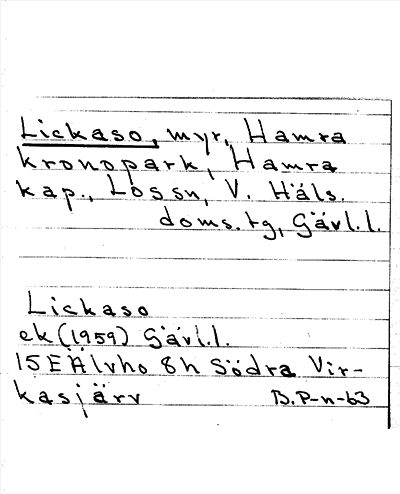 Lickaso, myr, Hamra
kronopark, Hamra
kap., Lossn, V. Häls.
doms.tg, Gävl.l.
Lickaso
ek (1959) Gävl.l.
15EÄlvho 8h Södra Vir-
kasjärv B.P-n-63